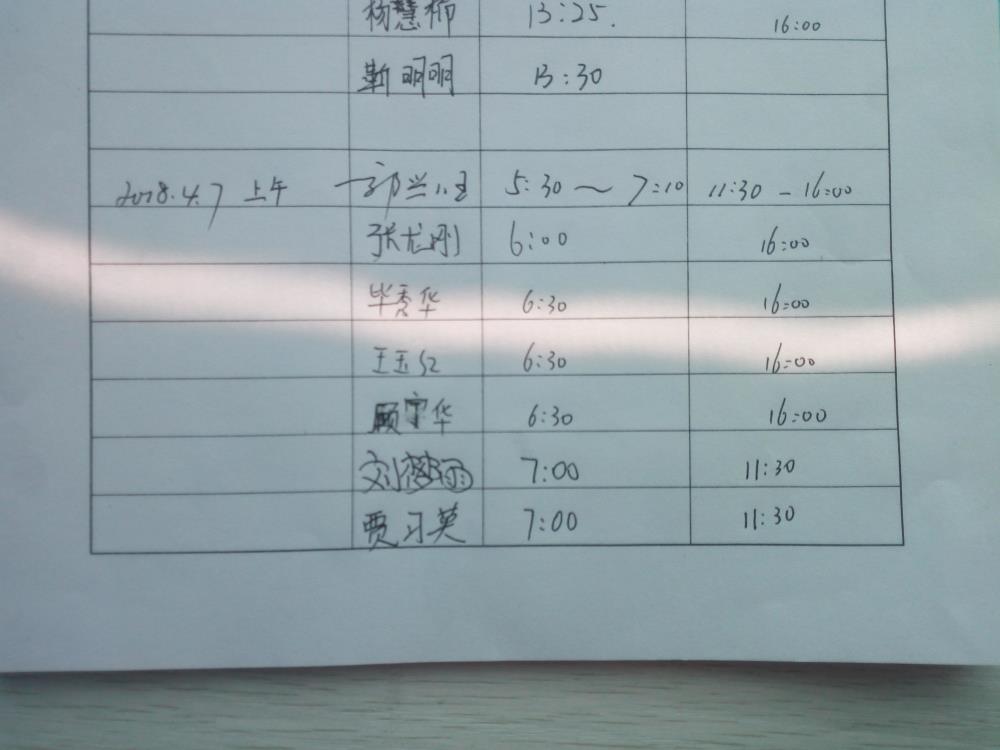 杨慧柳 13:25. 16:00
靳明明 13:30
2018.4.7 上午 郭兴旺 5:30～7:10 11:30-16:00
张龙刚 6:00 16:00
毕秀华 6:30 16:00
王玉红 6:30 16:00
顾宇华 6:30 16:00
刘梦雨 7:00 11:30
贾习英 7:00 11:30